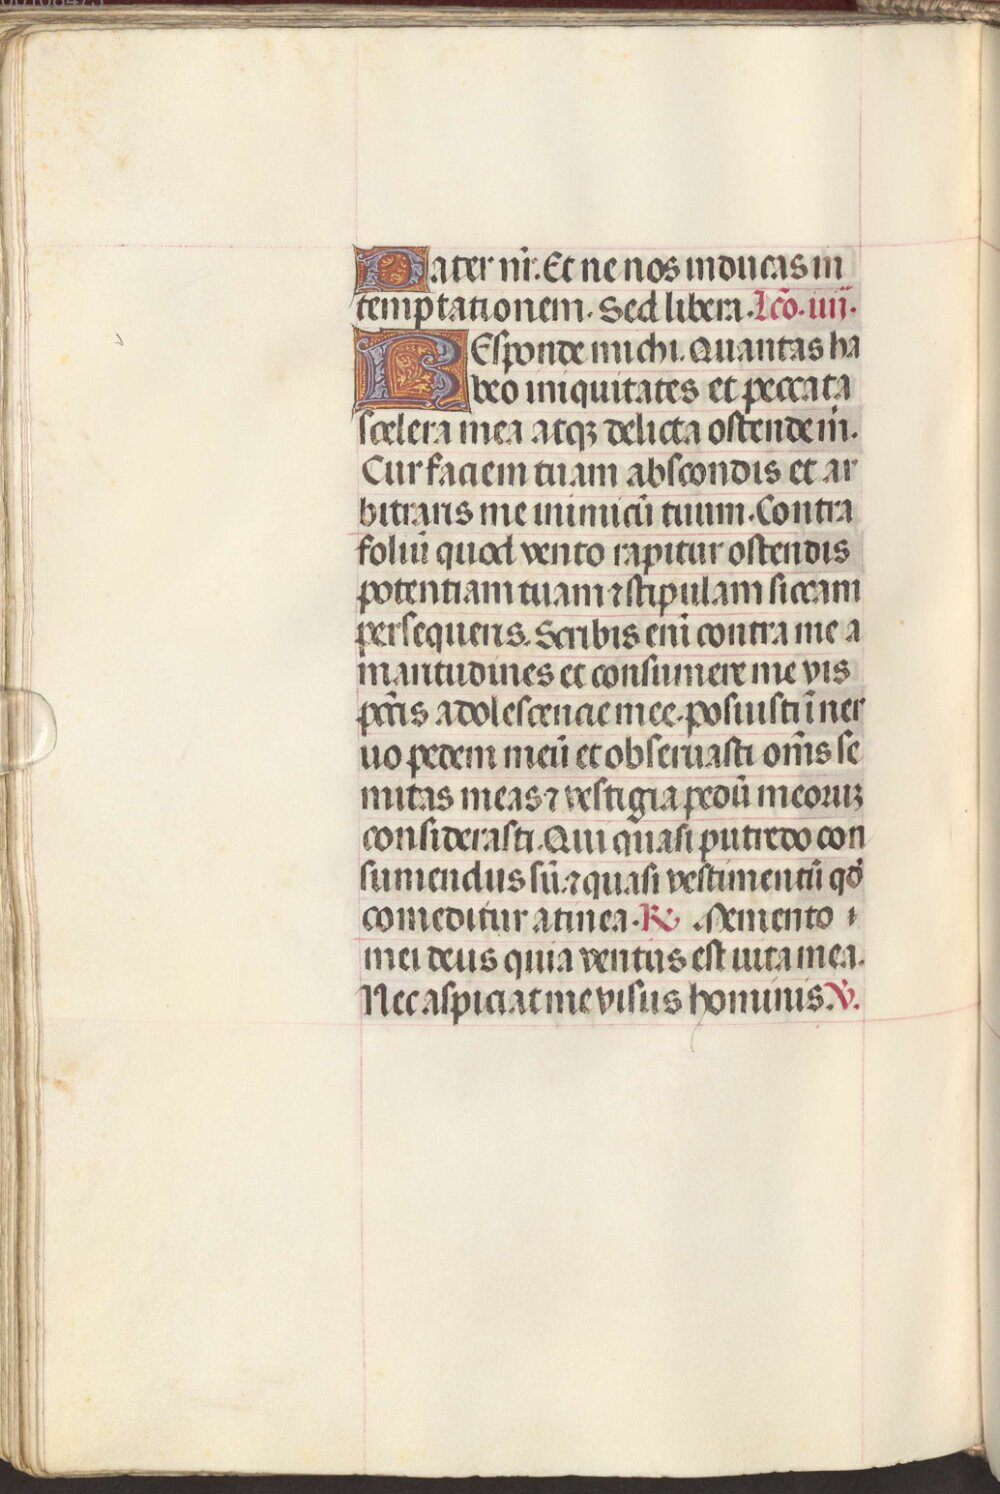 Pater nr̄. Et ne nos inducas in
temptationem. Sed libera. Lcō. iiii.
REsponde michi. Quantas ha
beo iniquitates et peccata
scelera mea atqꝫ delicta ostende m̄.
Cur faciem tuam abscondis et ar
bitraris me inimicū tuum. Contra
foliū quod vento rapitur ostendis
potentiam tuam ⁊ stipulam siccam
persequeris. Scribis eni̅ contra me a
maritudines et consumere me vis
pctīs adolescencie mee. posuisti ī ner
uo pedem meū et obseruasti om̄s se
mitas meas ⁊ vestigia pedū meoruꝫ
considerasti. Qui quasi putredo con
sumendus sū. ⁊ quasi vestimentū qd̄
comeditur a tinea. ℟ Memento
mei deus quia ventus est uita mea.
Nec aspiciat me visus hominis. ℣.